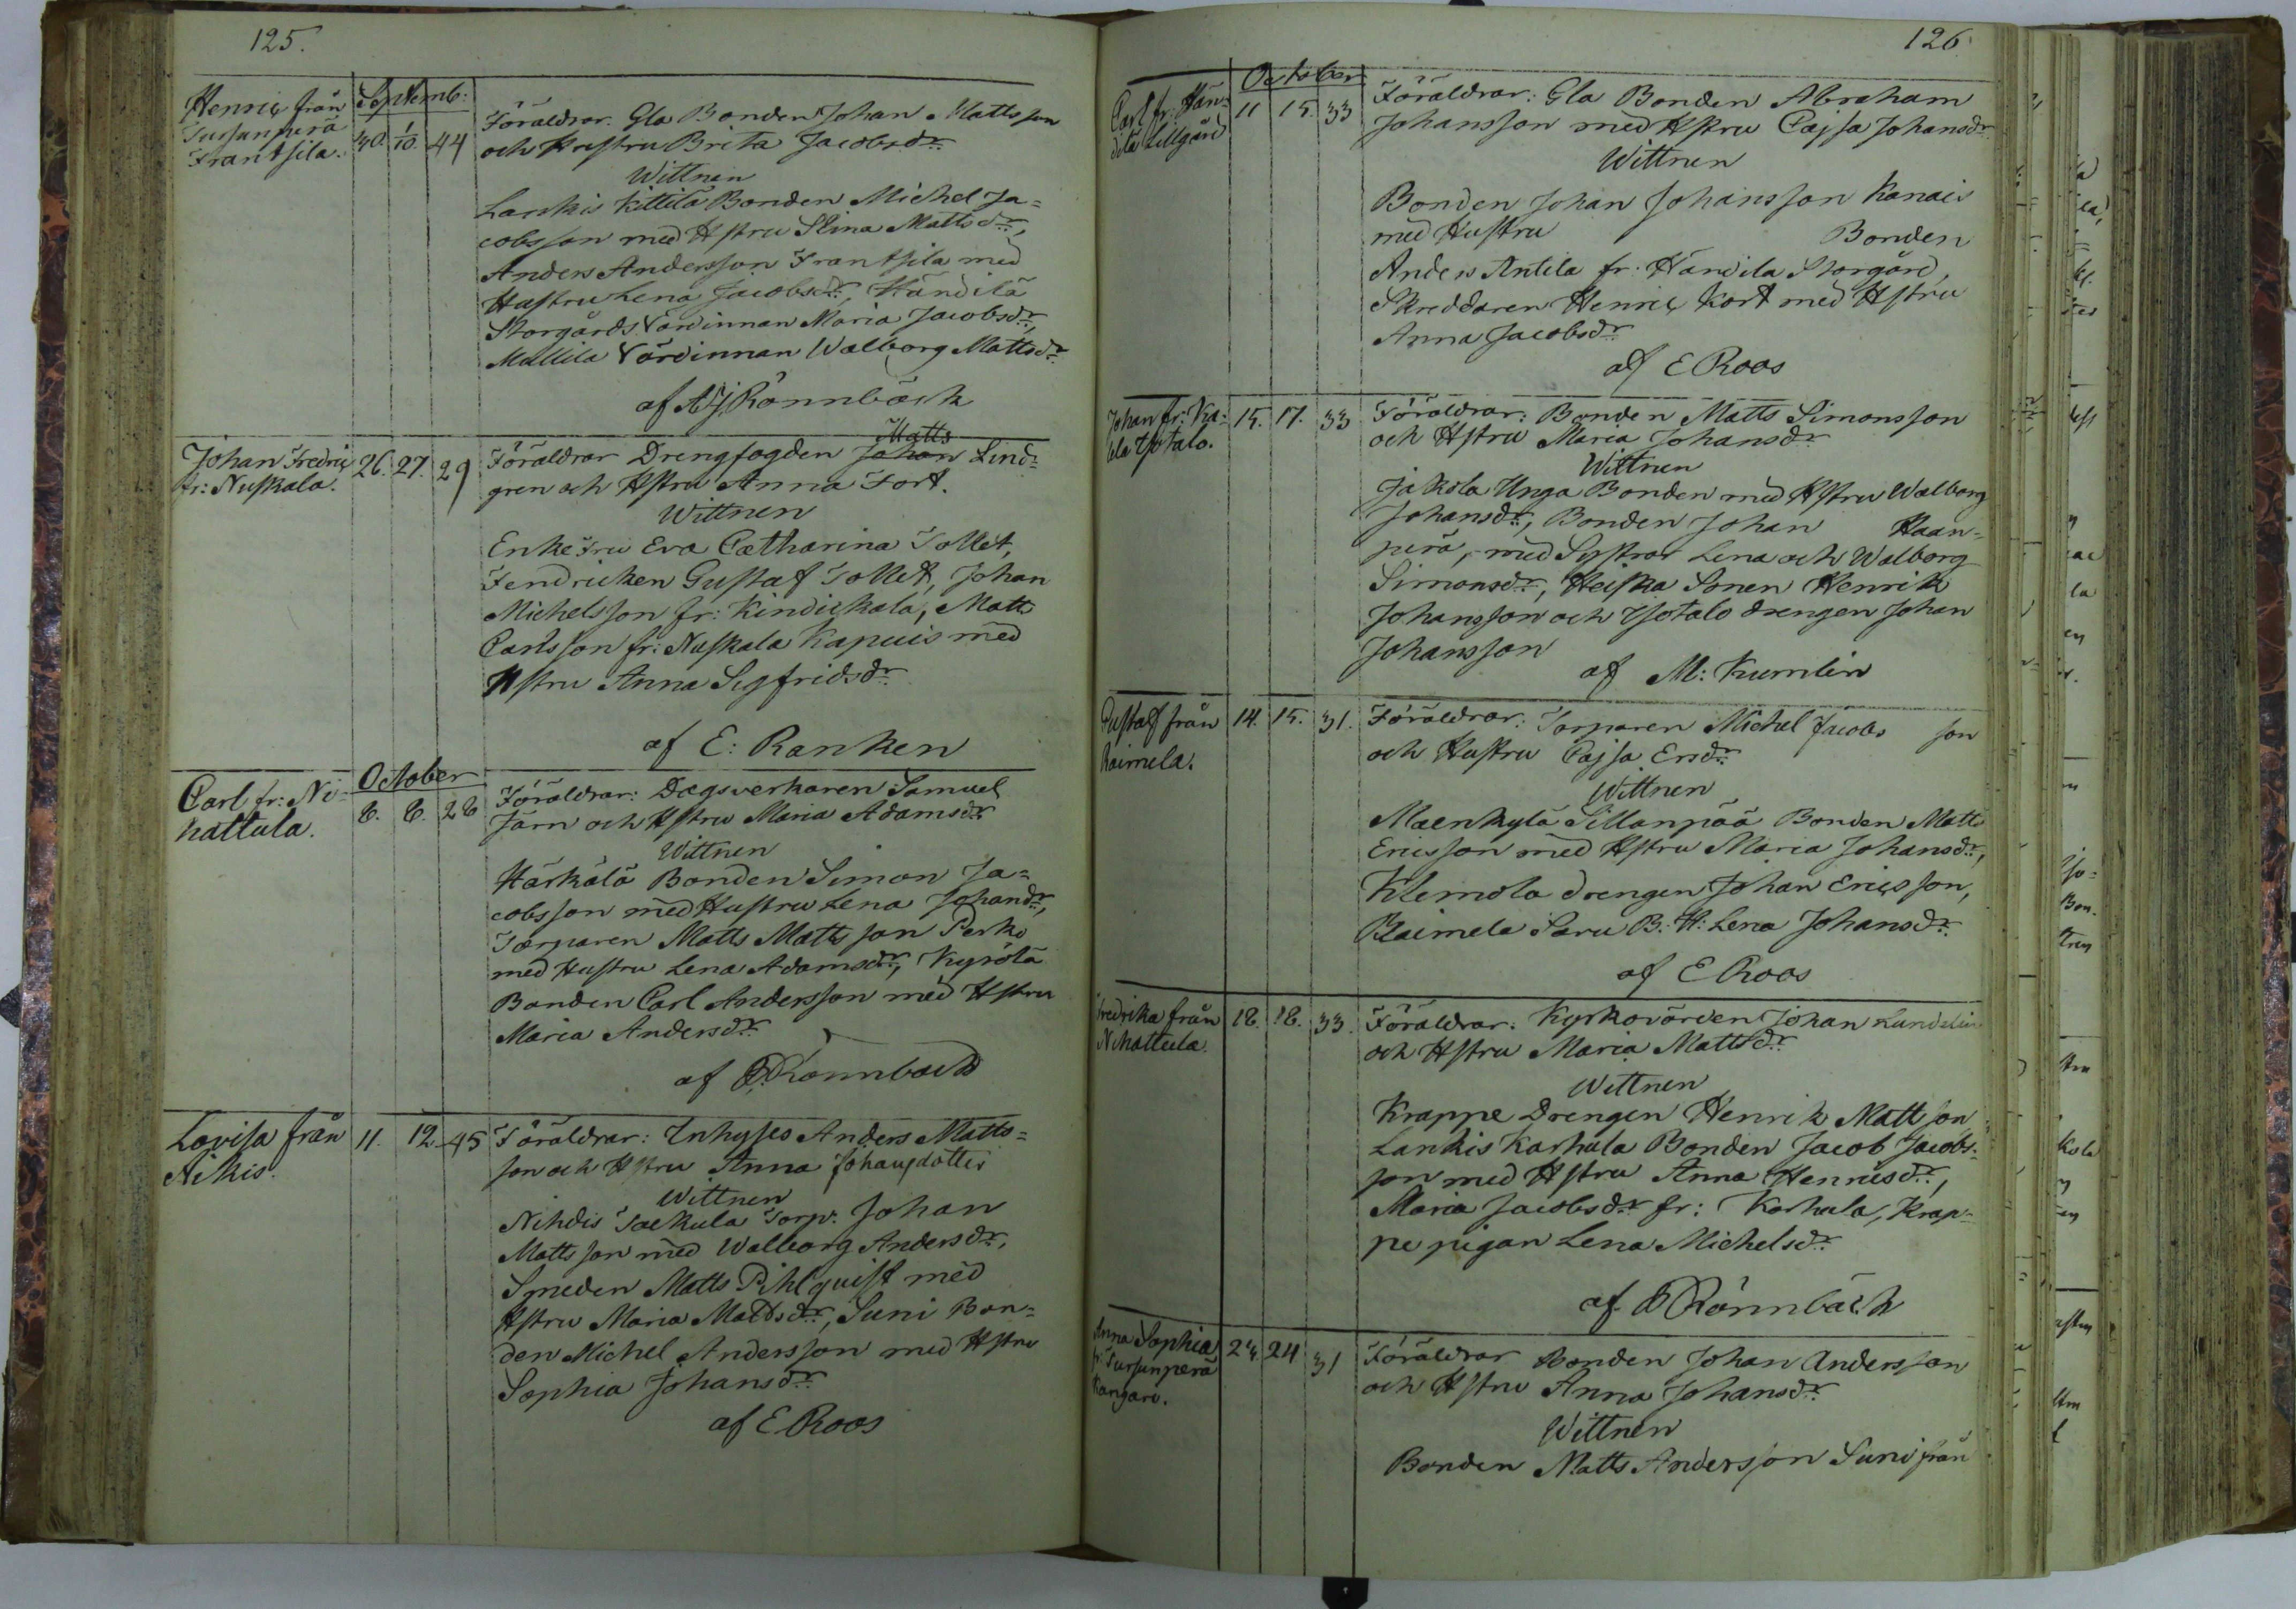 125.
Septemb:
Henric från
Tursunperä
Frantsila.
30. 1/10. 44
Föräldrar. Gla Bonden Johan Mattsson
och Hustru Brita Jacobsdr
Wittnen
Lankis Kittilä Bonden Michel Ja=
cobsson med Hstru Stina Mattsdr,
Anders Andersson Frantsila med
Hustru Lena Jacobsdr, Händilä
Storgårds Värdinnan Maria Jacobsdr,
Mallila Värdinnan Walborg Mattsdr
af Rönnbäck
Johan Fredric
fr: Nuskala.
26. 27. 29
Matts
Föräldrar Drengfogden Johan Lind=
gren och Hstru Anna Fort.
Wittnen
Enke Fru Eva Catharina Tollet,
Fendricken Gustaf Tollet, Johan
Michelsson fr: Kindickala, Matts
Carlsson fr: Nuskala Kapuis med
Hstru Anna Sigfridsdr
af E: Ranken
October
Carl fr: Ni=
hattula.
8. 8. 28
Föräldrar: Dagsverkaren Samuel
Järn och Hstru Maria Adamsdr
Wittnen
Härkälä Bonden Simon Ja=
cobsson med Hustru Lena Johansdr,
Torparen Matts Mattsson Perko
med Hustru Lena Adamsdr, Kyrölä
Bonden Carl Andersson med Hstru
Maria Andersdr
af Rönnbäck
Lovisa från
Nikis.
11. 12. 45
Föräldrar: Inhyses Anders Matts=
son och Hstru Anna Johansdotter
Wittnen
Nihdis Taekula Torp: Johan
Mattsson med Walborg Andersdr,
Smeden Matts Pihlquist med
Hstru Maria Mattsdr, Suni Bon=
den Michel Andersson med Hstru
Sophia Johansdr
af E Roos
126.
October
Carl fr: Hän=
dilä Lillgård
11 15. 33
Föräldrar: Gla Bonden Abraham
Johansson med Hstru Cajsa Johansdr
Wittnen
Bonden Johan Johansson Kanais
med Hustru Bonden
Anders Antila fr: Händila Storgård,
Skreddaren Henric Kort med Hstru
Anna Jacobsdr
af E Roos
Johan fr: Ka=
lela Ysotalo.
15. 17. 33
Föräldrar: Bonden Matts Simonsson
och Hstru Maria Johansdr
Wittnen
Jakola Unga Bonden med Hstru Walborg
Johansdr, Bonden Johan Haan=
perä, med Systrar Lena och Walborg
Simonsdr, Heiska Sonen Henrik
Johansson och Ysotalo drengen Johan
Johansson
af M: Kumlin
Gustaf från
Raimela.
14. 15. 31.
Föräldrar: Torparen Michel Jacobs son
och Hustru Cajsa Ersdr
Wittnen
Maenkylä Sillanpää Bonden Matts
Ericsson med Hstru Maria Johansdr,
Klemola drengen Johan Ericsson,
Raimela Saru B: H: Lena Johansdr
af E Roos
Fredrika från
Nihattula.
18. 18. 33.
Föräldrar: Kyrkovärden Johan Lundelin
och Hstru Maria Mattsdr
Wittnen
Krappe Drengen Henrik Mattson
Lankis Karhula Bonden Jacob Jacobs=
son med Hstru Anna Henricsdr,
Maria Jacobsdr fr: Karhula, Krap=
pe pigan Lena Michelsdr
af Rönnbäck
Anna Sophia
fr: Tursunperä
Kangari.
24. 24 31
Föräldrar Bonden Johan Andersson
och Hstru Anna Johansdr
Wittnen
Bonden Matts Andersson Suni från